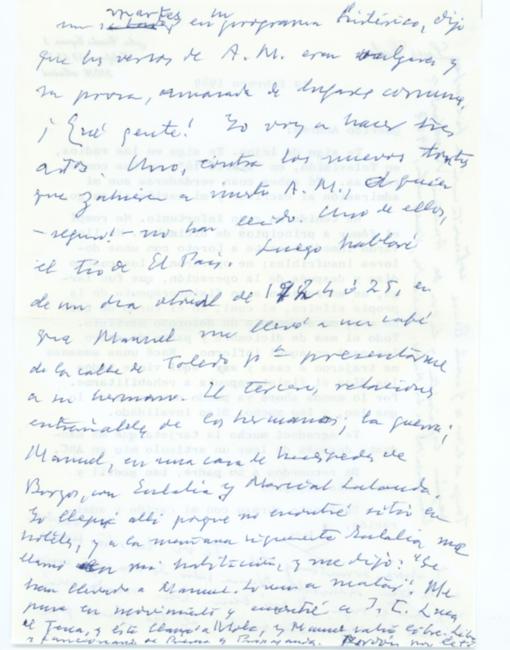 martes
un en programa histérico, dijo
que los versos de A. M. eran vulgares y
su prosa, amasada de lugares comunes,
¡Qué gente! Yo voy a hacer tres
artos. Uno, contra los nuevos tontos
que zahieren a nuestro A. M., al quien
- seguro! - no han leído. Uno de ellos,
el tío de El País. Luego hablaré
de un día otoñal de 1924 ó 25, en
que Manuel me llevó a un café
de la calle de Toledo pª presentarme
a su hermano. El tercero, relaciones
entrañables de los hermanos, la guerra;
Manuel, en una casa de huéspedes de
Burgos, con Eulalia y Marcial Lalanda.
Yo llegué allí porque no encontré sitio en
hoteles, y a la mañana siguiente Eulalia me
llamó en mi habitación, y me dijo: "Se
han llevado a Manuel. Lo van a matar". Me
puse en movimiento y encontré a J. I. Luca
de Tena, y éste llamó a Mola, y Manuel salió libre.
y funcionario de Prensa y Propaganda. Perdón